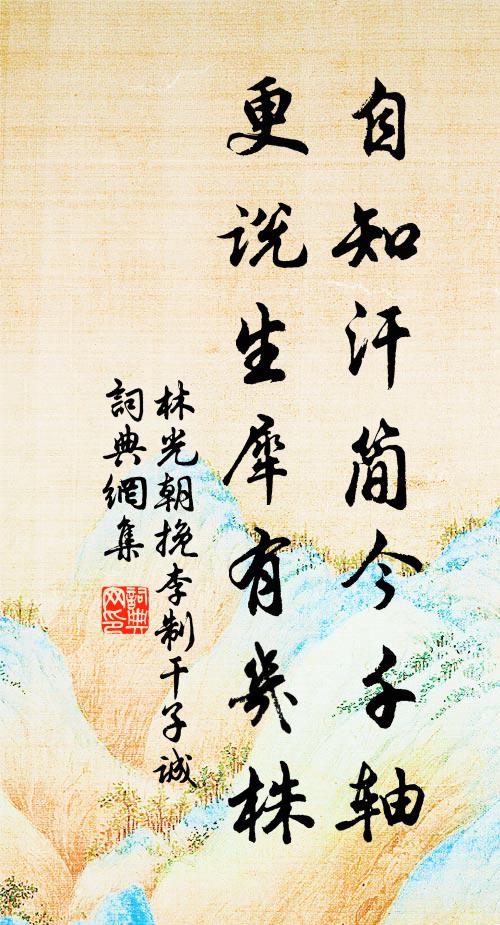 自知汗简今千轴
更说生犀有几株
林光朝挽李制干子诚
詞典網集
詞典網印